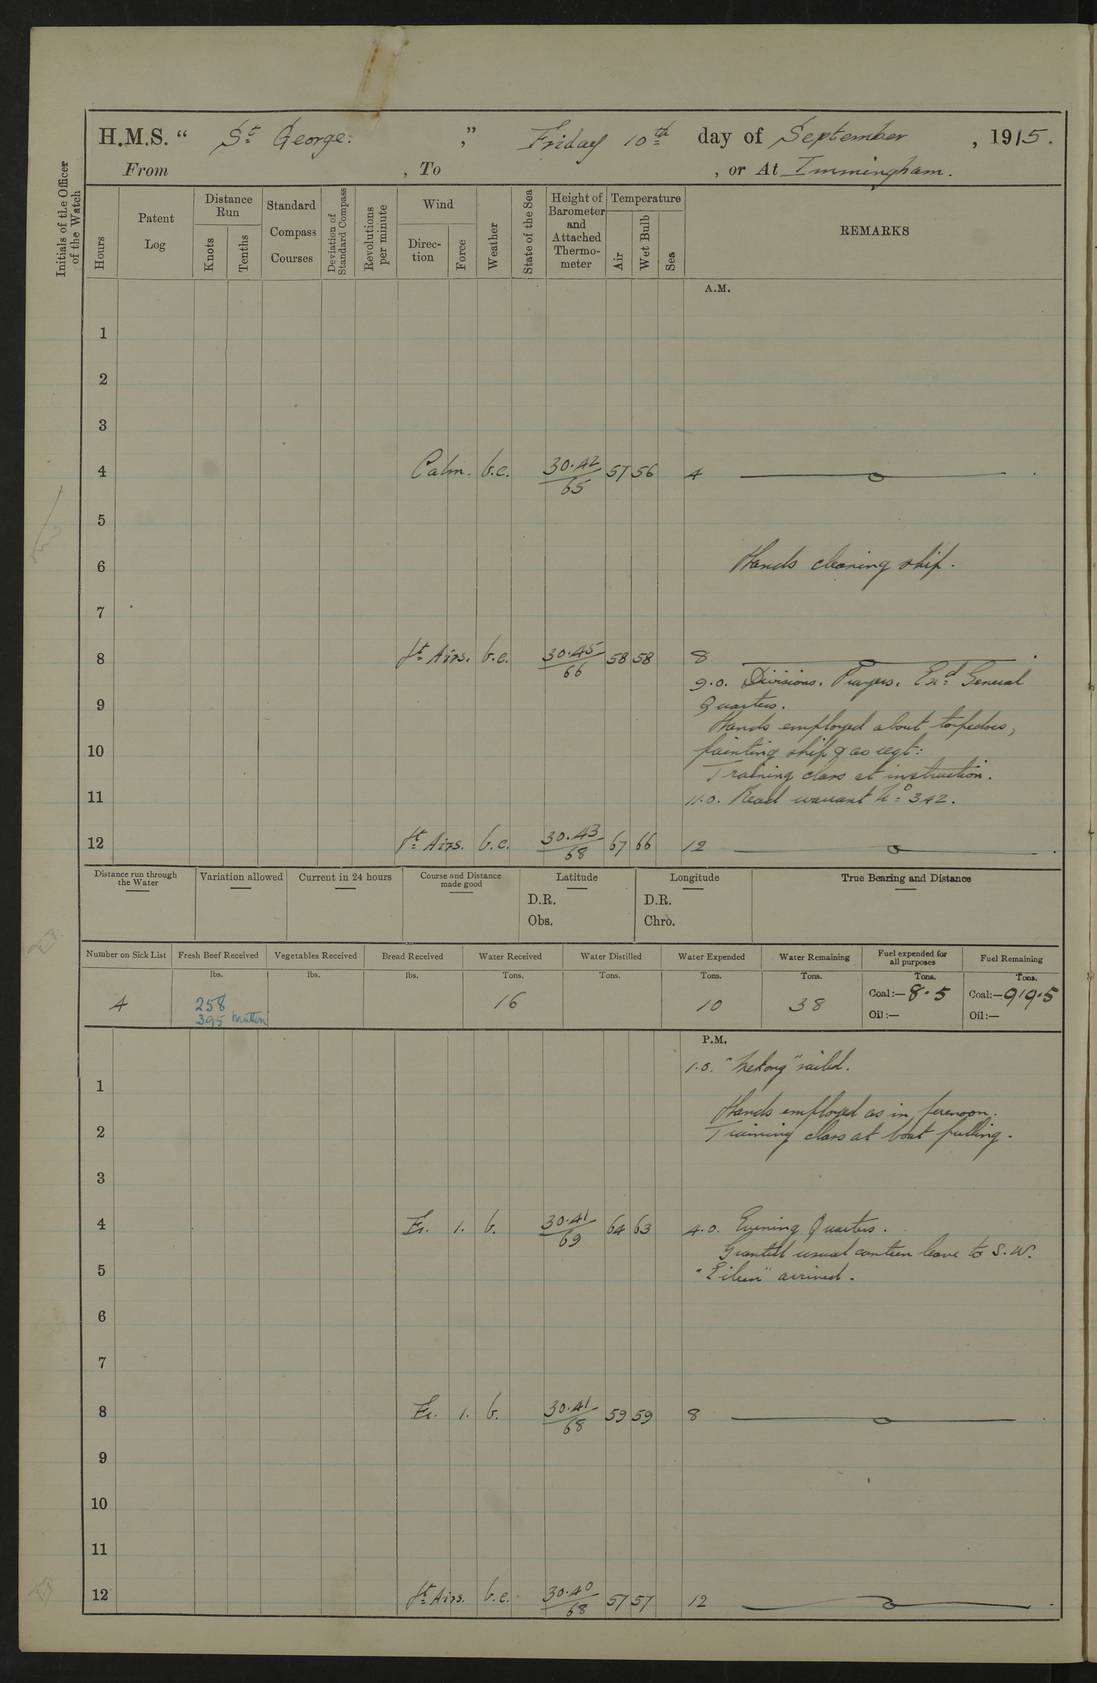 H.M.S. “ St George: ”, Friday 10th day of September, 1915.
From , To , or At Immingham.
Initials of the Officer of the Watch
Hours
Patent Log
Distance Run
Knots
Tenths
Standard Compass Courses
Deviation of Standard Compass
Revolutions per minute
Wind
Direc-tion
Force
Weather
State of the Sea
Height of Barometer and Attached Thermo-meter
Temperature
Air
Wet Bulb
Sea
REMARKS
A.M.
1
2
3
4 Calm. b.c. 30.42/65 57 56 4
5
6 Hands cleaning ship.
7
8 Lt Airs. b.c. 30.45/66 58 58 8
9.0. Divisions. Prayers. Exd General
9 Quarters.
Hands employed about torpedoes,
10 painting ship & as reqt:
Training class at instruction.
11 11.0. Read warrant No 342.
12 Lt Airs. b.c. 30.43/68 67 66 12
Distance run through the Water
Variation allowed
Current in 24 hours
Course and Distance made good
Latitude
D.R.
Obs.
Longitude
D.R.
Chro.
True Bearing and Distance
Number on Sick List
4
Fresh Beef Received
lbs.
258
395 Mutton
Vegetables Received
lbs.
Bread Received
lbs.
Water Received
Tons.
16
Water Distilled
Tons.
Water Expended
Tons.
10
Water Remaining
Tons.
38
Fuel expended for all purposes
Tons.
Coal:— 8.5
Oil:—
Fuel Remaining
Tons.
Coal:— 919.5
Oil:—
P.M.
1.0. "Mekong" sailed.
1
Hands employed as in forenoon.
2 Training class at boat pulling.
3
4 1. b. 30.41/69 64 63 4.0. Evening Quarters.
Granted usual canteen leave to S.W.
5 "Eileen" arrived.
6
7
8 1. b. 30.41/68 59 59 8
9
10
11
12 Lt Airs. b.c. 30.40/68 57 57 12